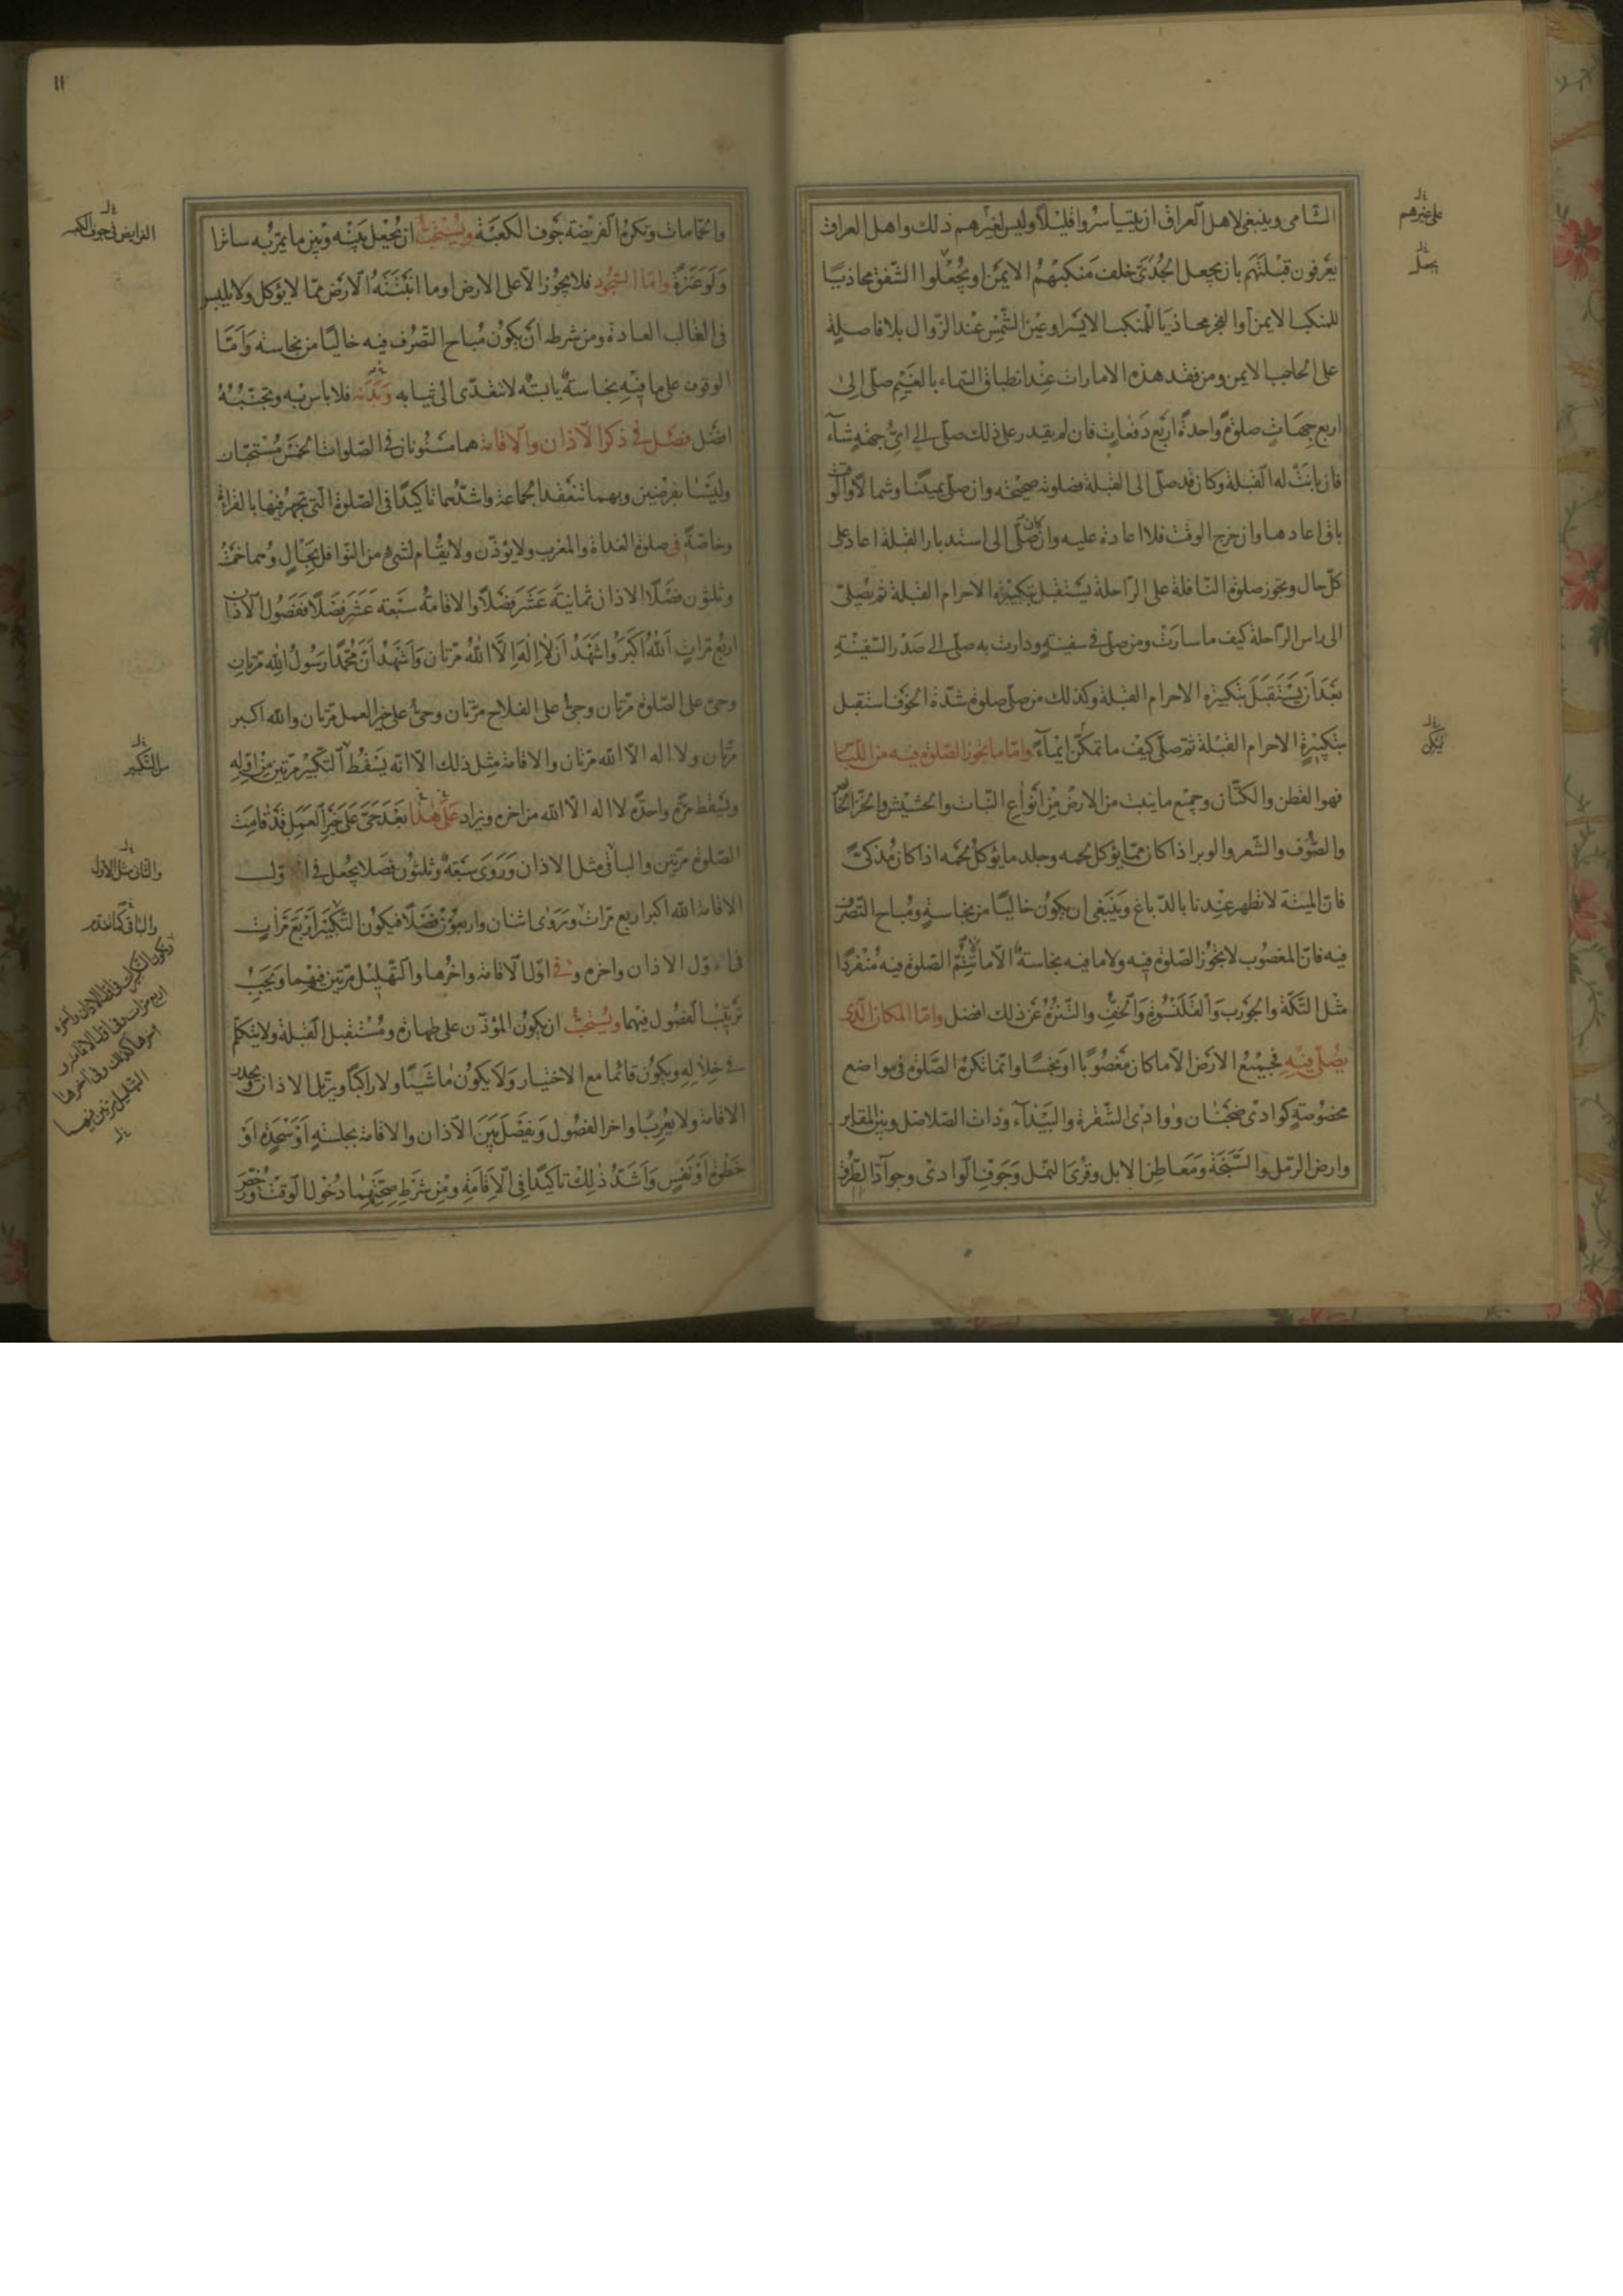 الشامى وينبغى لاهل العراق ان يتياسروا قليلاً وليس لغيرهم ذلك واهل العراق
يعرفون قبلتهم بان يجعل الجدى خلف منكبهم الايمن او يجعلوا الشفق محاذيا
للمنكب الايمن او الفجر محاذيا للمنكب الايسر او عين الشمس عند الزوال بلا فاصلة
على الحاجب الايمن ومن فقد هذه الامارات عند انطباق السماء بالغيم صلى الى
اربع جهات صلوة واحدة اربع دفعات فان لم يقدر على ذلك صلى الى اى جهة شاء
فان بانت له القبلة وكان قد صلى الى القبلة فصلوته صحيحة وان صلى يمينا وشمالا والوقت
باق اعادها وان خرج الوقت فلا اعادة عليه وان كان صلى الى استدبار القبلة اعاد على
كل حال ويجوز صلوة النافلة على الراحلة يستقبل بتكبيرة الاحرام القبلة ثم يصلى
الى راس الراحلة كيف ما سارت ومن صلى فى سفينة ودارت به صلى الى صدر السفينة
بعد ان يستقبل بتكبيرة الاحرام القبلة وكذلك من صلى صلوة شدة الخوف استقبل
بتكبيرة الاحرام القبلة ثم صلى كيف ما تمكن ايماء واما ما يجوز الصلوة فيه من اللباس
فهو القطن والكتان وجميع ما ينبت من الارض من انواع النبات والحشيش والخز الخالص
والصوف والشعر والوبر اذا كان مما يؤكل لحمه وجلد ما يؤكل لحمه اذا كان مذكى
فان الميتة لا تطهر عندنا بالدباغ وينبغى ان يكون خاليا من نجاسة ومباح التصرف
فيه فان المغصوب لا يجوز الصلوة فيه ولا ما فيه نجاسة الا ما لا تتم الصلوة فيه منفردا
مثل التكة والجورب والقلنسوة والخف والتنزه عن ذلك افضل واما المكان الذى
يصلى فيه فجميع الارض الا ما كان مغصوبا او نجسا وانما تكره الصلوة فى مواضع
مخصوصة كوادى ضجنان ووادى الشقرة والبيداء وذات الصلاصل وبين المقابر
وارض الرمل والسبخة ومعاطن الابل وقرى النمل وجوف الوادى وجواد الطرق
على غيرهم
يجعل
يمكن
١١
والحمامات وتكره الفريضة جوف الكعبة ويستحب ان يجعل بينه وبين ما يمر به ساترا
ولو عنزة واما السجود فلا يجوز الا على الارض او ما انبتته الارض مما لا يؤكل ولا يلبس
فى الغالب العادة ومن شرطه ان يكون مباح التصرف فيه خاليا من نجاسة واما
الوقوف على ما فيه نجاسة يابسة لا تتعدى الى ثيابه وبدنه فلا باس به وتجنبه
افضل فصل فى ذكر الاذان والاقامة هما مسنونان فى الصلوات الخمس مستحبان
وليسا بفرضين وبهما تنعقد الجماعة واشدهما تاكيدا فى الصلوة التى تجهر فيها بالقراءة
وخاصة فى صلوة الغداة والمغرب ولا يؤذن ولا يقام لشىء من النوافل بحال وهما خمسة
وثلثون فصلا الاذان ثمانية عشر فصلا والاقامة سبعة عشر فصلا ففصول الاذان
اربع مرات الله اكبر واشهد ان لا اله الا الله مرتان واشهد ان محمدا رسول الله مرتان
وحى على الصلوة مرتان وحى على الفلاح مرتان وحى على خير العمل مرتان والله اكبر
مرتان ولا اله الا الله مرتان والاقامة مثل ذلك الا انه يسقط التكبير مرتين من اوله
ويسقط مرة واحدة لا اله الا الله من اخره ويزاد على هذا بعد حى على خير العمل قد قامت
الصلوة مرتين والباقى مثل الاذان وروى سبعة وثلثون فصلا يجعل فى اول
الاقامة الله اكبر اربع مرات وروى اثنان واربعون فصلا فيكون التكبير اربع مرات
فى اول الاذان واخره وفى اول الاقامة واخرها والتهليل مرتين فيهما ويجب
ترتيب الفصول فيهما ويستحب ان يكون المؤذن على طهارة ومستقبل القبلة ولا يتكلم
فى خلاله ويكون قائما مع الاختيار ولا يكون ماشيا ولا راكبا ويرتل الاذان ويحدر
الاقامة ولا يعرب اواخر الفصول ويفصل بين الاذان والاقامة بجلسة او سجدة او
خطوة او نفس واشد ذلك تاكيدا فى الاقامة ومن شرط صحتهما دخول الوقت ورخص
الفرايض فى جوف الكعبة
من التكبير
والثانى مثل الاول